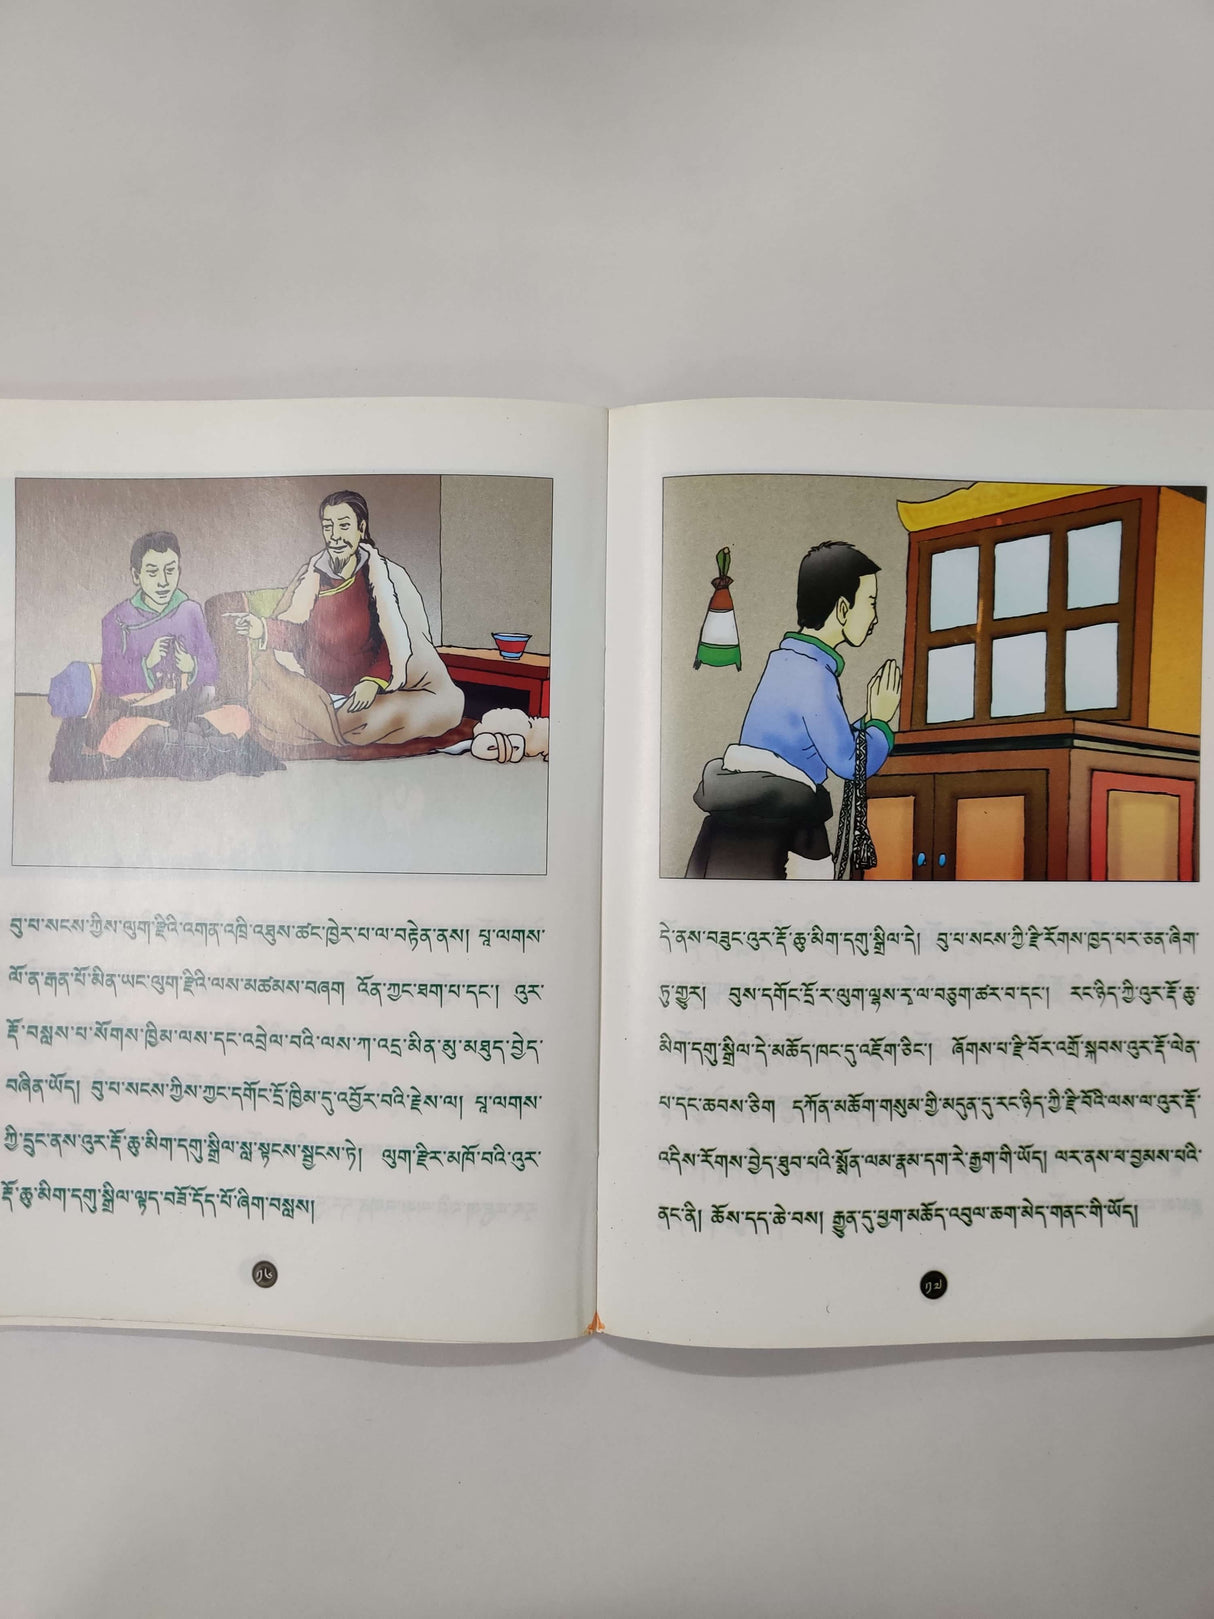 བུ་པ་སངས་ཀྱིས་ལུག་རྫིའི་འགན་འཁྲི་འཐུས་ཚང་ཁྱེར་པ་ལ་བརྟེན་ནས། པཱ་ལགས་
ལོ་ན་རྒན་པོ་མིན་ཡང་ལུག་རྫིའི་ལས་མཚམས་བཞག འོན་ཀྱང་ཐག་པ་དང༌། འུར་
རྡོ་བསླས་པ་སོགས་ཁྱིམ་ལས་དང་འབྲེལ་བའི་ལས་ཀ་འདྲ་མིན་མུ་མཐུད་བྱེད་
བཞིན་ཡོད། བུ་པ་སངས་ཀྱིས་ཀྱང་དགོང་དྲོ་ཁྱིམ་དུ་འབྱོར་བའི་རྗེས་ལ། པཱ་ལགས་
ཀྱི་དྲུང་ནས་འུར་རྡོ་ཆུ་མིག་དགུ་སྒྲིལ་སླ་སྟངས་སྦྱངས་ཏེ། ལུག་རྫིར་མཁོ་བའི་འུར་
རྡོ་ཆུ་མིག་དགུ་སྒྲིལ་ལྟད་བཟོ་དོད་པོ་ཞིག་བསླས།
༡༦
དེ་ནས་བཟུང་འུར་རྡོ་ཆུ་མིག་དགུ་སྒྲིལ་དེ། བུ་པ་སངས་ཀྱི་རྫི་རོགས་ཁྱད་པར་ཅན་ཞིག་
ཏུ་གྱུར། བུས་དགོང་དྲོ་ར་ལུག་ལྷས་ར་ལ་བཅུག་ཚར་བ་དང༌། རང་ཉིད་ཀྱི་འུར་རྡོ་ཆུ་
མིག་དགུ་སྒྲིལ་དེ་མཆོད་ཁང་དུ་འཇོག་ཅིང༌། ཞོགས་པ་རྫི་བོར་འགྲོ་སྐབས་འུར་རྡོ་ལེན་
པ་དང་ཆབས་ཅིག དཀོན་མཆོག་གསུམ་གྱི་མདུན་དུ་རང་ཉིད་ཀྱི་རྫི་བོའི་ལས་ལ་འུར་རྡོ་
འདིས་རོགས་བྱེད་ཐུབ་པའི་སྨོན་ལམ་རྣམ་དག་རེ་རྒྱག་གི་ཡོད། ལར་ནས་ཕ་བྱམས་པའི་
ནང་ནི། ཆོས་དད་ཆེ་བས། རྒྱུན་དུ་ཕྱག་མཆོད་འབུལ་ཆག་མེད་གནང་གི་ཡོད།
༡༧